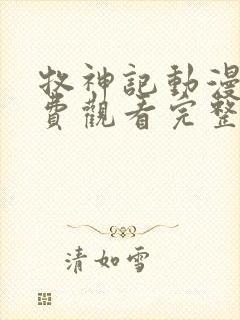 牧神記動漫
費觀看完整
清如雪